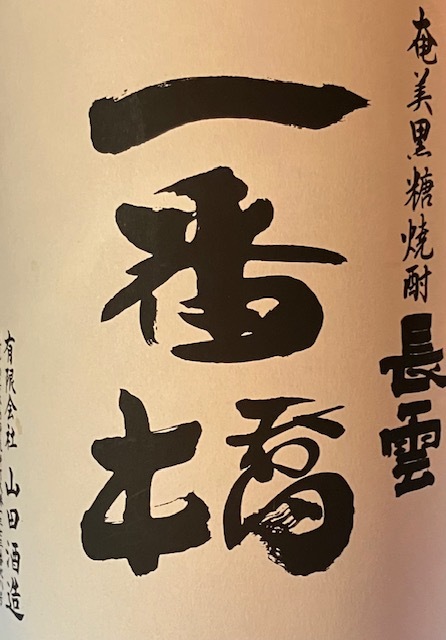 奄美黒糖焼酎 長雲
一番橋
有限会社 山田酒造